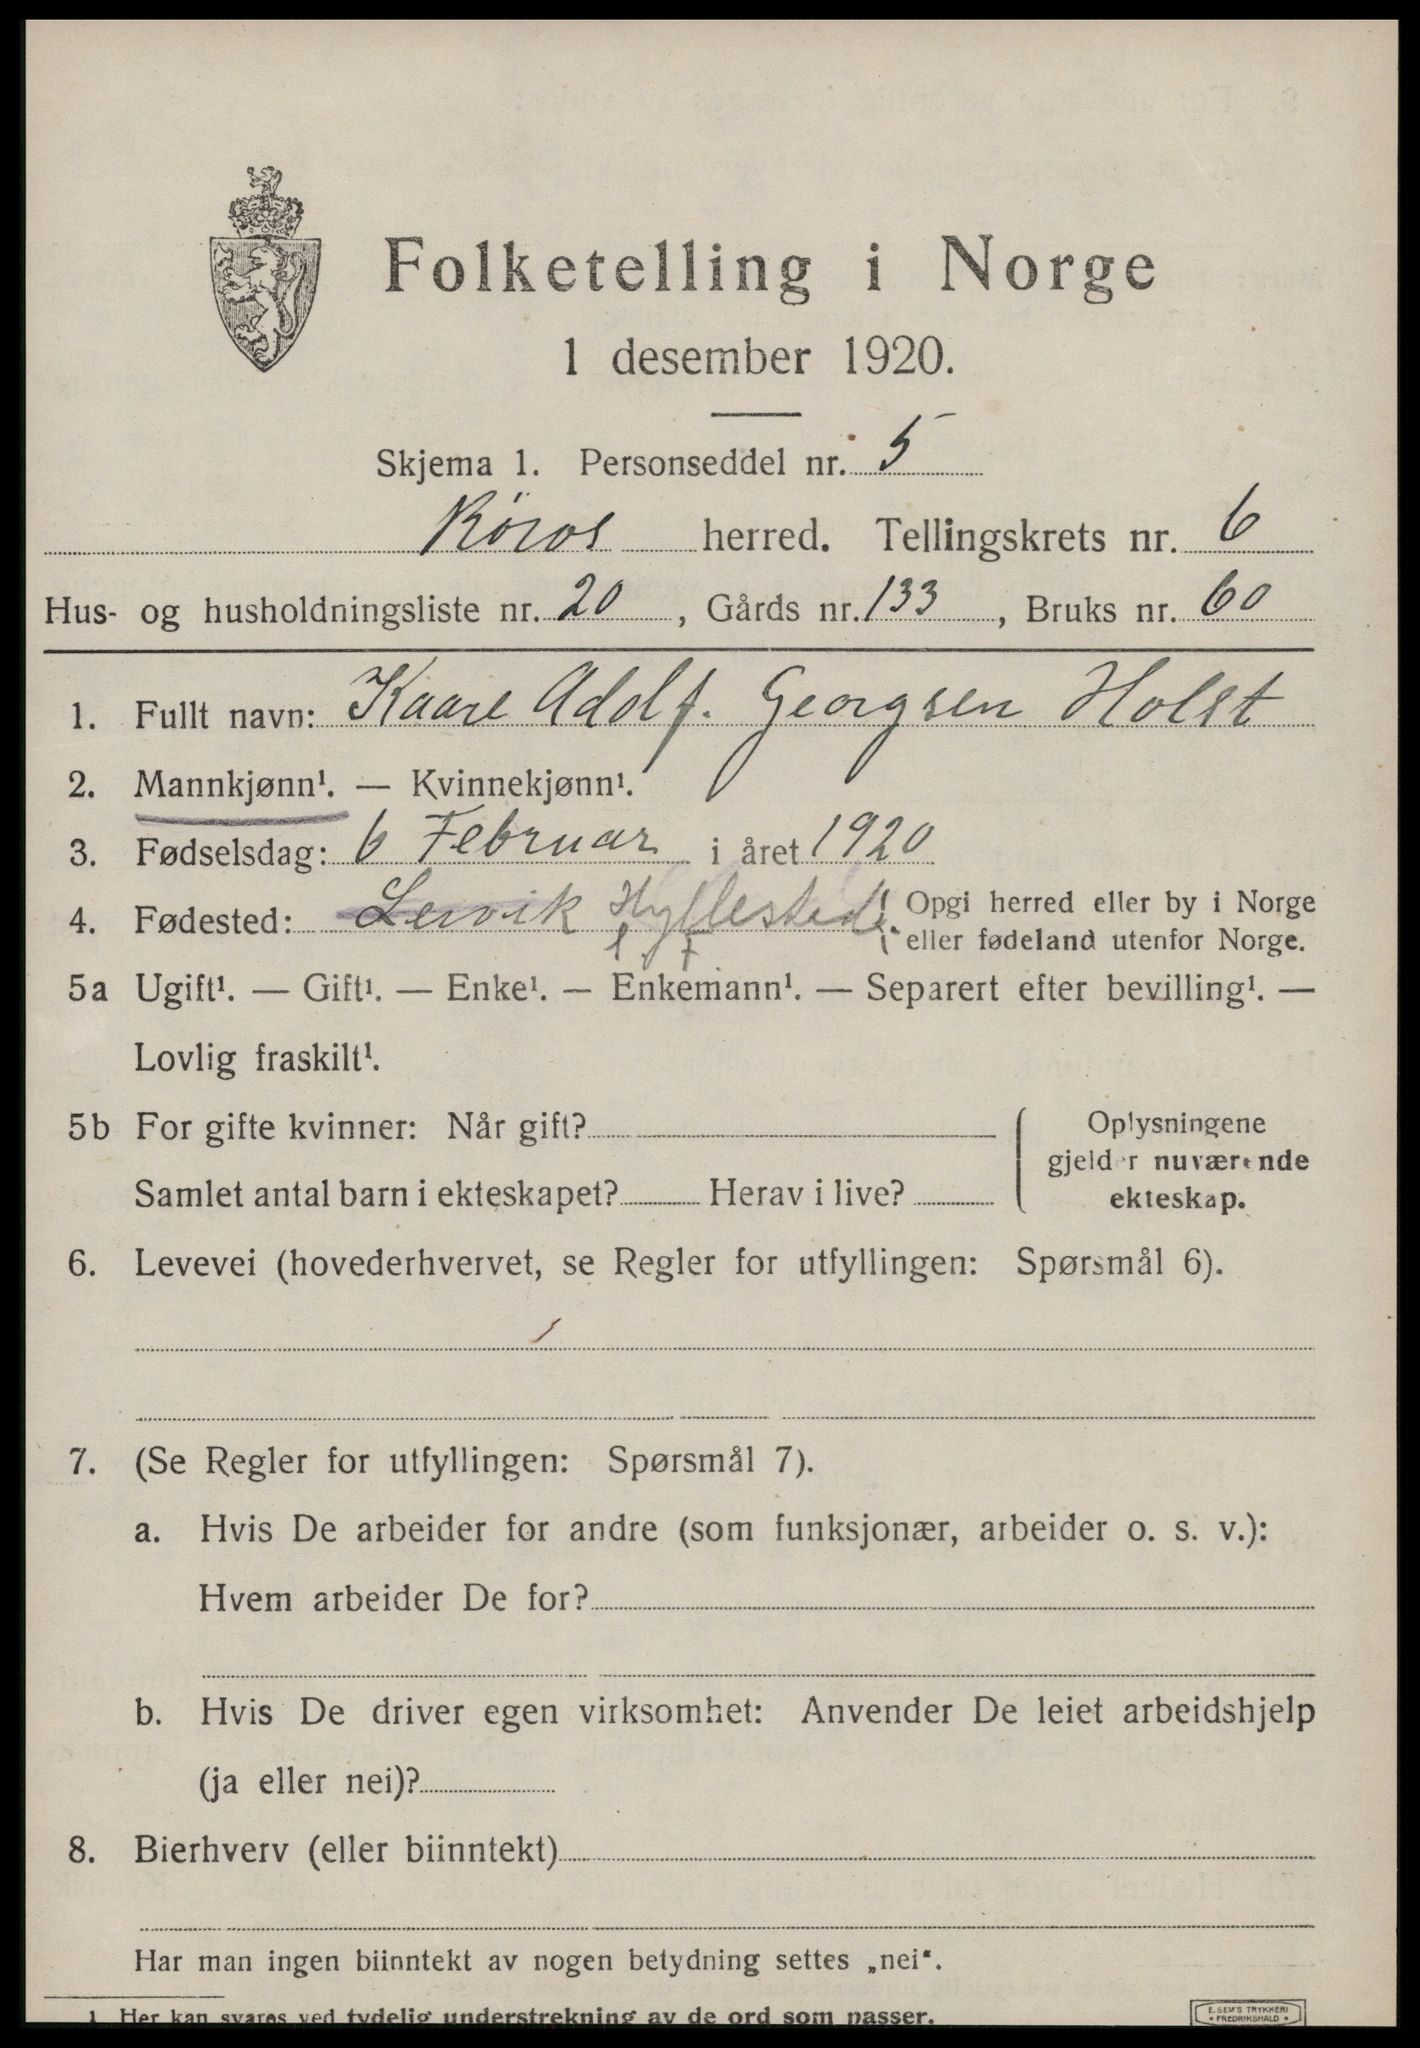 Folketelling i Norge
1 desember 1920.
Skjema 1. Personseddel nr. 5
Røros herred. Tellingskrets nr. 6
Hus- og husholdningsliste nr. 20, Gårds nr. 133, Bruks nr. 60
1. Fullt navn: Kaare Adolf. Georgsen Holst
2. Mannkjønn¹. — Kvinnekjønn¹.
3. Fødselsdag: 6 Februar i året 1920
4. Fødested: Leirvik Hyllestad. Opgi herred eller by i Norge
eller fødeland utenfor Norge.
5a Ugift¹. — Gift¹. — Enke¹. — Enkemann¹. — Separert efter bevilling¹. —
Lovlig fraskilt¹.
5b For gifte kvinner: Når gift? Oplysningene
gjelder nuværende
Samlet antal barn i ekteskapet? Herav i live? ekteskap.
6. Levevei (hovederhvervet, se Regler for utfyllingen: Spørsmål 6).
7. (Se Regler for utfyllingen: Spørsmål 7).
a. Hvis De arbeider for andre (som funksjonær, arbeider o. s. v.):
Hvem arbeider De for?
b. Hvis De driver egen virksomhet: Anvender De leiet arbeidshjelp
(ja eller nei)?
8. Bierhverv (eller biinntekt)
Har man ingen biinntekt av nogen betydning settes „nei“.
1. Her kan svares ved tydelig understrekning av de ord som passer.
E. SEM'S TRYKKERI
FREDRIKSHALD